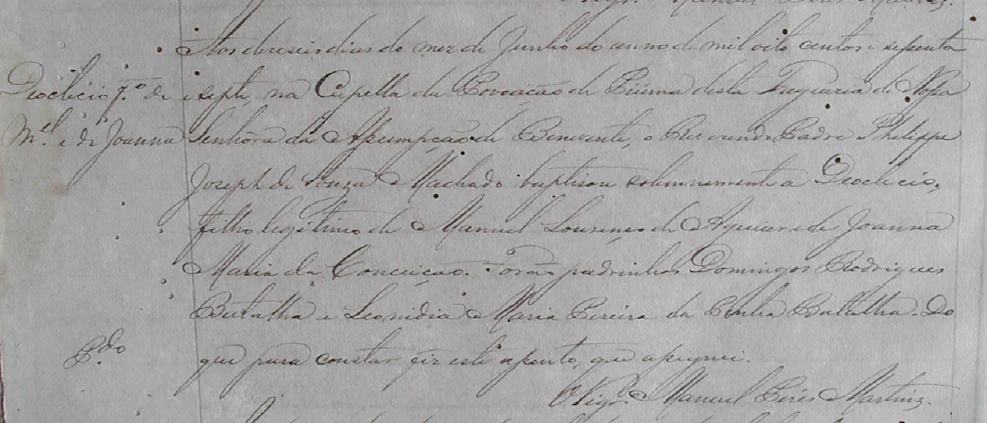 Aos deseseis dias do mez de Junho do anno de mil oito centos e sessenta
Deoclecio f.º de
e septe, na Capella da Povoação de Piúma desta Freguezia de Nossa
M.el e de Joanna
Senhora da Assumpção de Benevente, o Reverendo Padre Philippe
Joseph de Souza Machado baptisou solemnemente a Deoclecio,
filho legitimo de Manuel Lourenço de Aguiar e de Joanna
Maria da Conceiçao. Forão padrinhos Domingos Rodrigues
Batalha e Leonidia Maria Pereira da Penha Batalha. Do
P.do
que para constar fiz este assento, que assignei.
O Vigr.º Manuel Pires Martins.